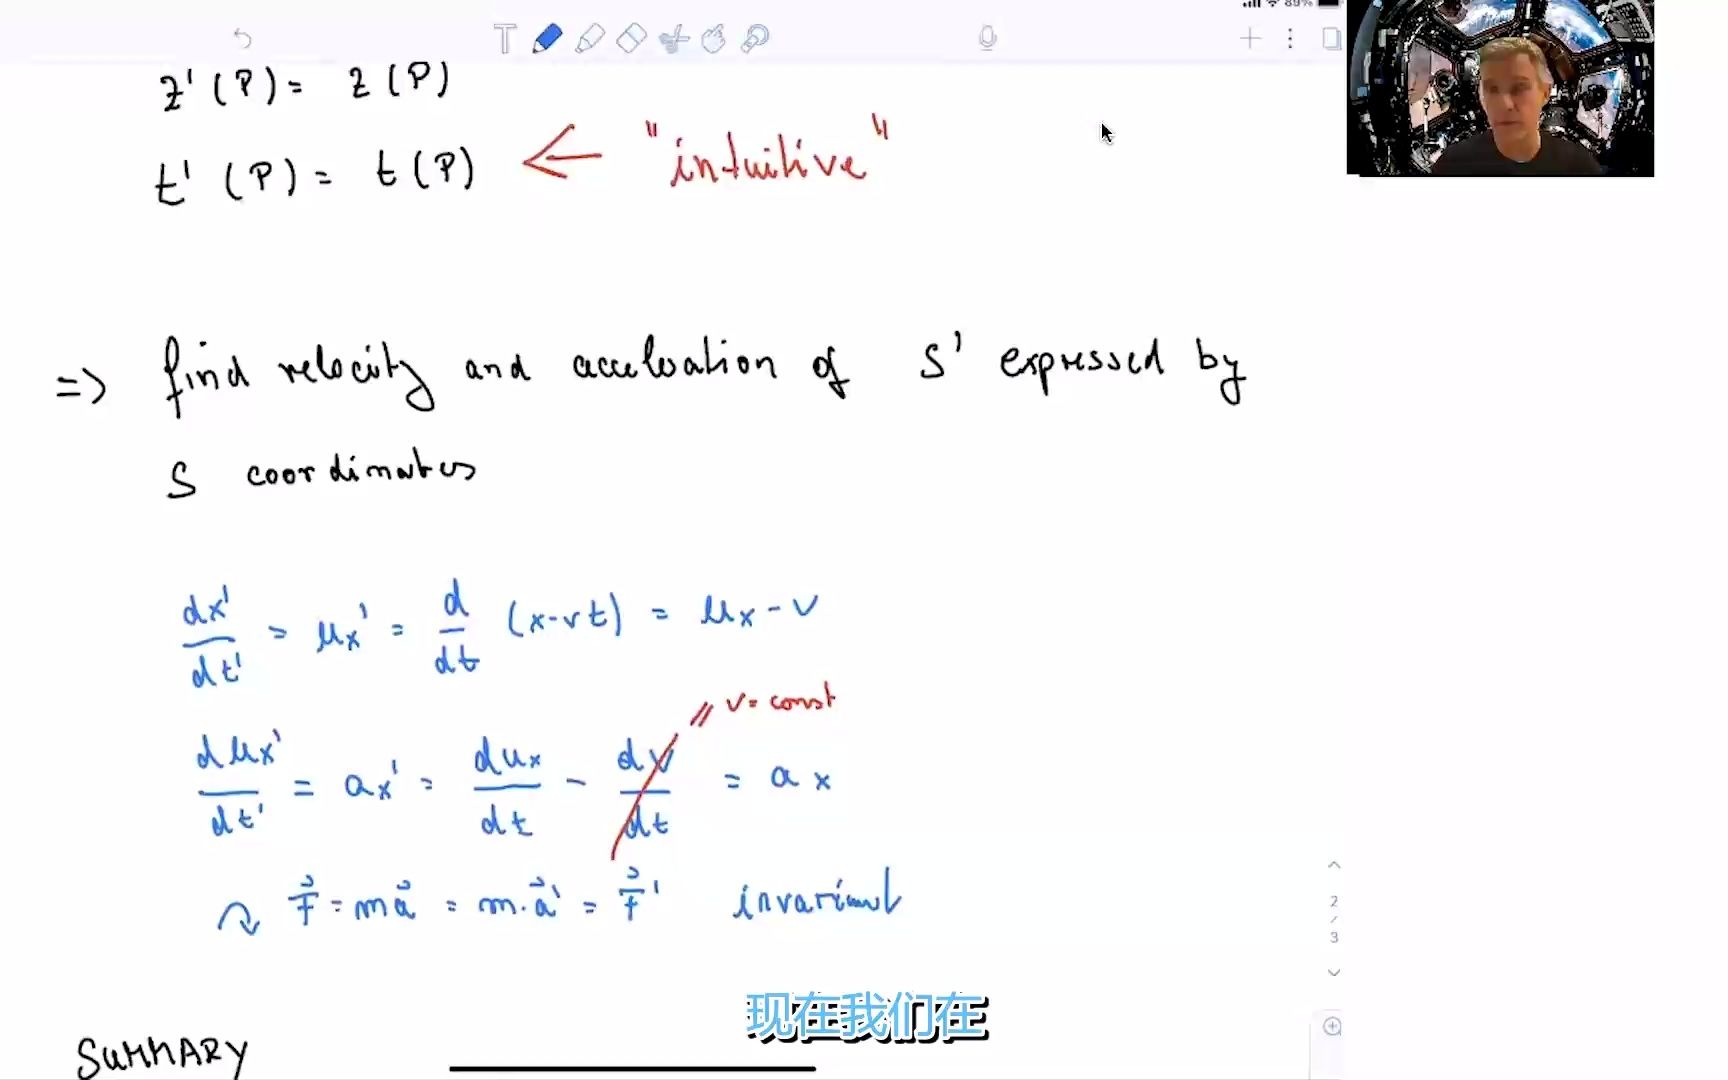 89%
z'(P) = z(P)
t'(P) = t(P) ← "intuitive"
=> find velocity and acceleration of S' expressed by
S coordinates
dx'/dt' = ux' = d/dt (x-vt) = ux - v
// v = const
dux'/dt' = ax' = dux/dt - dv/dt = ax
↷ F⃗ = ma⃗ = m·a⃗' = F⃗' invariant
2
/
3
现在我们在
SUMMARY